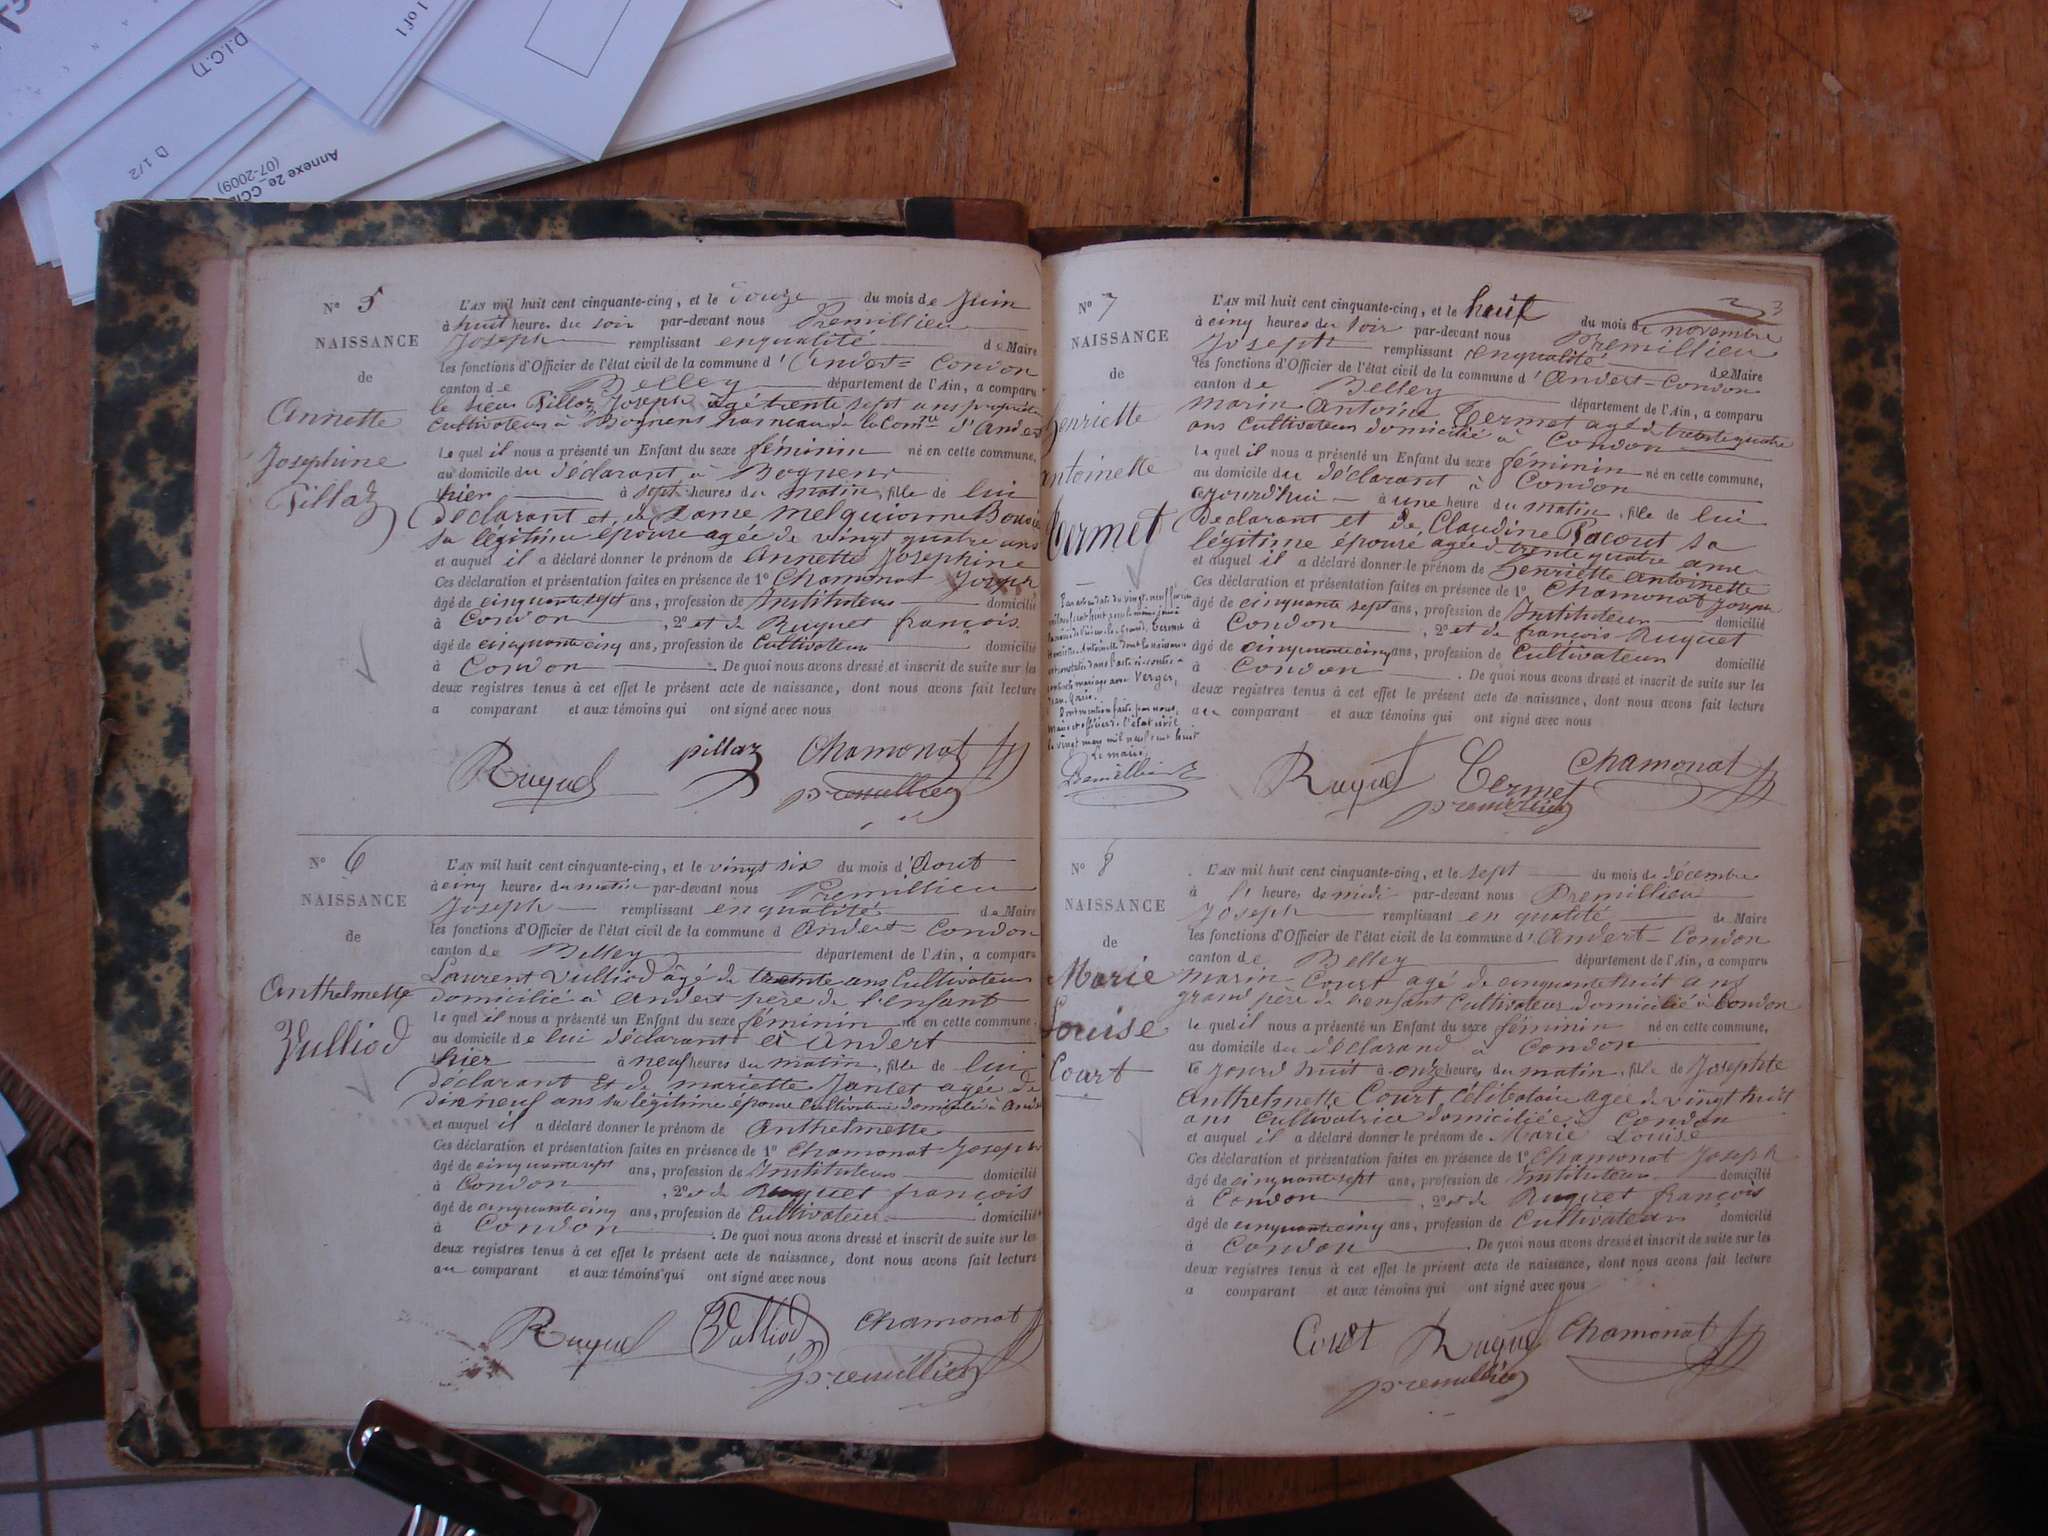 1 of 1
D.I.C.T)
D 1/2
Annexe 2e_CCI
(07-2009)
N° 5
NAISSANCE
de
Annette
Josephine
Pillaz
L'AN mil huit cent cinquante-cinq, et le Douze du mois de Juin
à huit heures du soir par-devant nous Premillieu
Joseph remplissant en qualité de Maire
les fonctions d'Officier de l'état civil de la commune d'Andert-Condon
canton de Belley département de l'Ain, a comparu
le sieur Pillaz Joseph agé trente sept ans propriétaire
Cultivateur à Bognens hameau de la Comne d'Andert
Lequel il nous a présenté un Enfant du sexe féminin né en cette commune,
au domicile du déclarant à Bognens
hier à sept heures du matin, fille de lui
déclarant et de Dame Melquionne
sa légitime épouse agée de vingt quatre ans
et auquel il a déclaré donner le prénom de Annette Josephine
Ces déclaration et présentation faites en présence de 1° Chamonat Joseph
âgé de cinquante sept ans, profession de Instituteur domicilié
à Condon, 2° et de Ruquet françois
âgé de cinquante cinq ans, profession de Cultivateur domicilié
à Condon. De quoi nous avons dressé et inscrit de suite sur les
deux registres tenus à cet effet le présent acte de naissance, dont nous avons fait lecture
a comparant et aux témoins qui ont signé avec nous
Ruquet pillaz Chamonat
premillieu
N° 6
NAISSANCE
de
Anthelmette
Vulliod
L'AN mil huit cent cinquante-cinq, et le vingt six du mois d'Aout
à cinq heures du matin par-devant nous Premillieu
Joseph remplissant en qualité de Maire
les fonctions d'Officier de l'état civil de la commune d Andert-Condon
canton de Belley département de l'Ain, a comparu
Laurent Vulliod âgé de trente ans Cultivateur
domicilié à Andert père de l'enfant
Lequel il nous a présenté un Enfant du sexe féminin né en cette commune,
au domicile de lui déclarant à Andert
hier à neuf heures du matin, fille de lui
déclarant et de mariette Jantet agée de
dix neuf ans sa légitime épouse Cultivatrice domiciliée à Andert
et auquel il a déclaré donner le prénom de Anthelmette
Ces déclaration et présentation faites en présence de 1° Chamonat Joseph
âgé de cinquante sept ans, profession de Instituteur domicilié
à Condon, 2° et de Ruquet françois
âgé de cinquante cinq ans, profession de Cultivateur domicilié
à Condon. De quoi nous avons dressé et inscrit de suite sur les
deux registres tenus à cet effet le présent acte de naissance, dont nous avons fait lecture
au comparant et aux témoins qui ont signé avec nous
Ruquet Vulliod Chamonat
premillieu
3
N° 7
NAISSANCE
de
henriette
Antoinette
Termet
L'AN mil huit cent cinquante-cinq, et le huit du mois de novembre
à cinq heures du soir par-devant nous Premillieu
Joseph remplissant en qualité de Maire
les fonctions d'Officier de l'état civil de la commune d'Andert-Condon
canton de Belley département de l'Ain, a comparu
marin Antoine Termet agé de trente quatre
ans Cultivateur domicilié à Condon
Lequel il nous a présenté un Enfant du sexe féminin né en cette commune,
au domicile du déclarant à Condon
à une heure du matin, fille de lui
declarant et de Claudine Pacout sa
légitime épouse agée de trente quatre ans
et auquel il a déclaré donner le prénom de henriette Antoinette
Ces déclaration et présentation faites en présence de 1° Chamonat Joseph
âgé de cinquante sept ans, profession de Instituteur domicilié
à Condon, 2° et de françois Ruquet
âgé de cinquante cinq ans, profession de Cultivateur domicilié
à Condon. De quoi nous avons dressé et inscrit de suite sur les
deux registres tenus à cet effet le présent acte de naissance, dont nous avons fait lecture
au comparant et aux témoins qui ont signé avec nous
mariage avec Verger,
Dont mention faite par nous,
Maire et officier de l'état civil
le vingt mars mil neuf cent huit
Le maire,
Premillieu
Ruquet Termet Chamonat
premillieu
N° 8
NAISSANCE
de
Marie
Louise
Court
L'AN mil huit cent cinquante-cinq, et le sept du mois de décembre
à 1 heures de midi par-devant nous Premillieu
Joseph remplissant en qualité de Maire
les fonctions d'Officier de l'état civil de la commune d'Andert-Condon
canton de Belley département de l'Ain, a comparu
marin Court agé de cinquante huit ans
grand père de l'enfant Cultivateur domicilié à Condon
Lequel il nous a présenté un Enfant du sexe féminin né en cette commune,
au domicile du déclarand à Condon
à onze heures du matin, fille de Josephte
Anthelmette Court, Célibataire agée de vingt huit
ans Cultivatrice domiciliée à Condon
et auquel il a déclaré donner le prénom de Marie Louise
Ces déclaration et présentation faites en présence de 1° Chamonat Joseph
âgé de cinquante sept ans, profession de Instituteur domicilié
à Condon, 2° et de Ruquet françois
âgé de cinquante cinq ans, profession de Cultivateur domicilié
à Condon. De quoi nous avons dressé et inscrit de suite sur les
deux registres tenus à cet effet le présent acte de naissance, dont nous avons fait lecture
a comparant et aux témoins qui ont signé avec nous
Court Ruquet Chamonat
premillieu